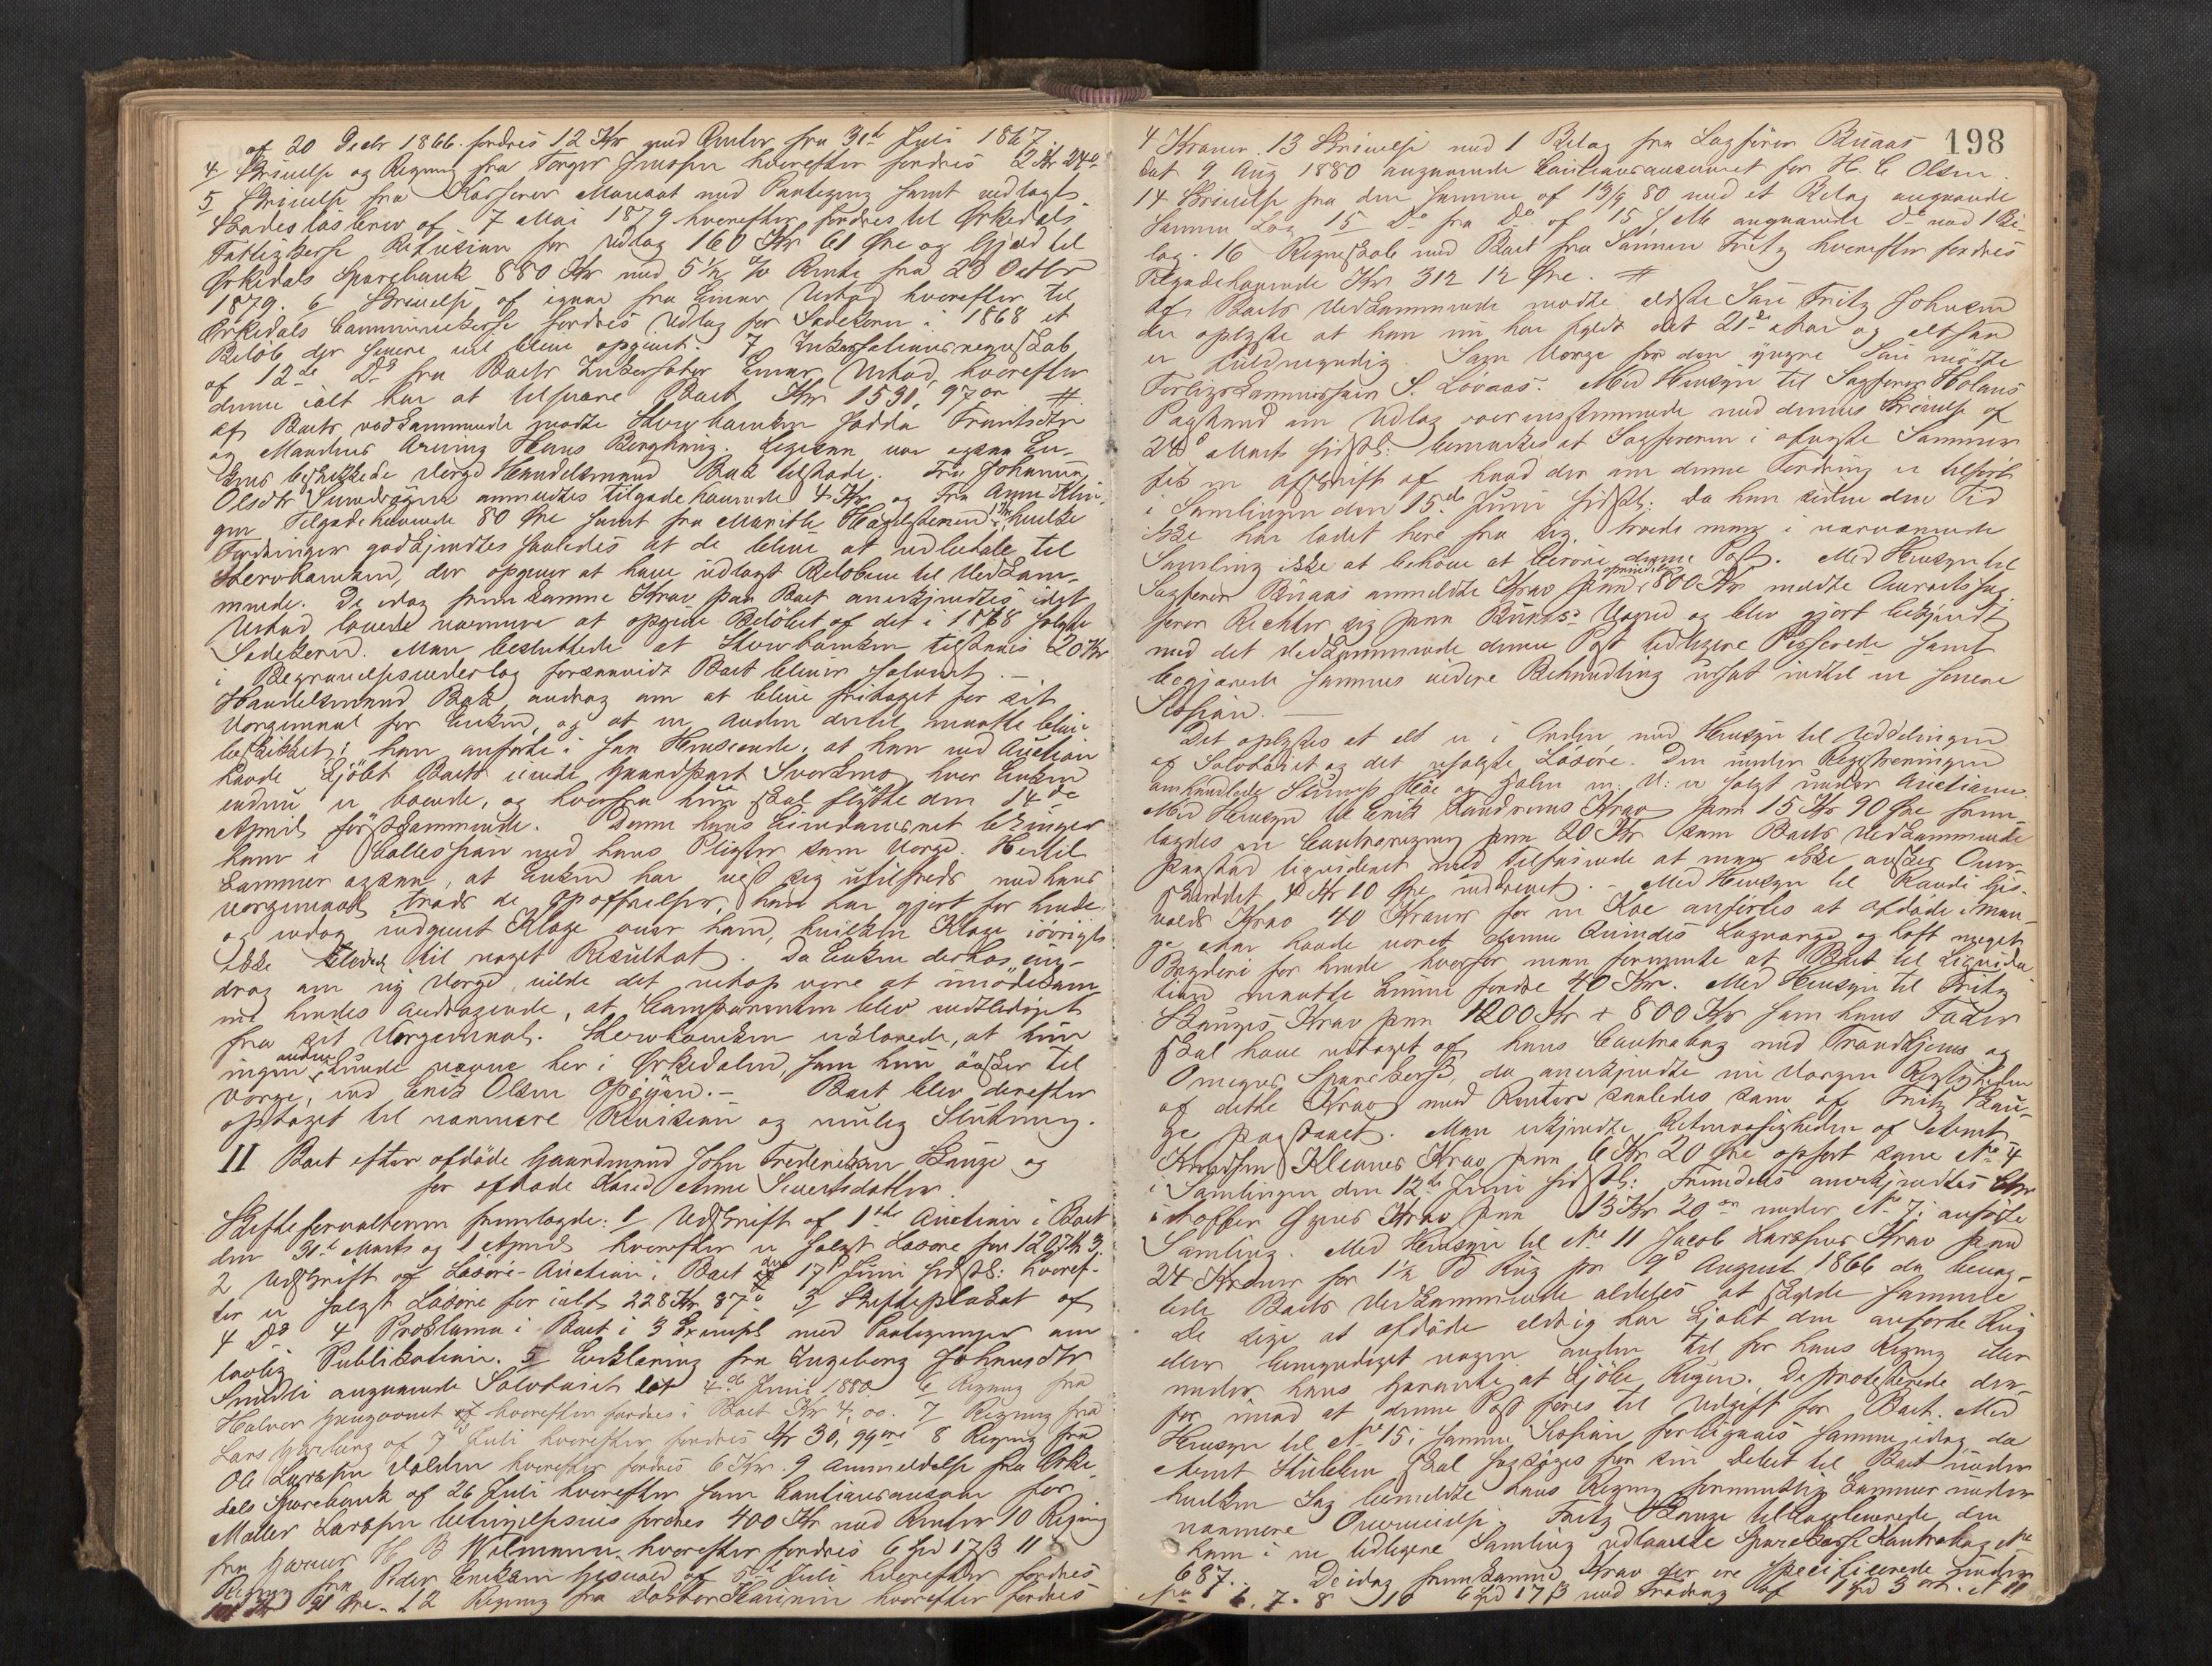 af 20 Decbr 1866. fordres 12 Kr med Renter fra 31te Juli 1867
4/ Skrivelse og Regning fra Torger Jenssen hvorefter fordres 2 Kr 24 ø
5 Skrivelse fra Kasserer med Paategning samt vedlagt
Skadesløsbrev af 7 Mai 1879 hvorefter fordres til Ørkedals
Fattigkasse Refusion for Udlæg 160 Kr 61 Øre og Gjæld til
Ørkedals Sparebank 880 Kr med 5½ % Rente fra 23 Octbr
1879. 6 Skrivelse af igaar fra Einar Ustad hvorefter til
Ørkedals Communekasse fordres Udlæg for Sædekorn i 1868 et
Beløb der senere vil blive opgivet. 7 Inkassationsregnskab
af 12te Ds fra Boets Inkassator Einar Ustad, hvorefter
denne ialt har at tilsvare Boet Kr 1531, 97 ør #
Af Boets vedkommende mødte Stervboenken Jødda Frantsdtr
og Mandens Arving Hans Berghning. Ligesom var ogsaa En-
kens beskikkede Verge Handelsmand Bak tilstede. Fra Johanna
Olsdtr anmeldtes tilgodehavende 4 Kr og fra Anne Klin-
gen Tilgodehavende 80 Øre samt fra Marith hvilke
Fordringer godkjendtes saaledes at de blive at udbetale til
Stervboenken, der opgiver at have udlagt Beløbene til Vedkom-
mende. De idag fremkomne Krav paa Boet anerkjendtes idet
Ustad lovede nærmere at opgive Beløbet af det i 1868 solgte
Sædekorn. Man besluttede at Stervboenken tilstaaes 20 Kr
i Begravelsesvederlag forsaavidt Boet bliver solvent. –
Handelsmand Bak androg om at blive fritaget for sit
Vergemaal for Enken, og at en Anden dertil maatte blive
beskikket; han anførte i saa Henseende, at han ved Auction
havde kjøbt Boets Gaardpart Svorkmo, hvor Enken
endnu er boende, og hvorfra hun skal flytte den 14de
April førstkommende. Denne hans Eiendomsret bringer
ham i Collission med hans Pligter som Verge. Hertil
kommer ogsaa, at Enken har vist sig utilfreds med hans
Vergemaal trods de Opoffrelser, han har gjort for hende
og endog indgivet Klage over ham, hvilken Klage iøvrigt
ikke ledede til noget Resultat. Da Enken derhos an-
drog om ny Verge, vilde det nethop være at imødekom-
me hendes Andragende, at Comparenten blev entlediget
fra sit Vergemaal. Stervboenken udlovede, at hun
ingen anden kunde nævne her i Ørkedalen, som hun ønsker til
Verge, end Erik Olsen Opøyan. – Boet blev derefter
optaget til nærmere Revision og mulig Slutning.
II Boet efter afdøde Gaardmand John Frederiksen Skauge og
før afdøde Kone Anne Sivertsdatter.
Skifteforvalteren fremlagde: 1/ Udskrift af 1ste Auction i Boet
den 31te Marts og 1 April hvorefter er solgt Løsøre for 1207 Kr 3.
2 Udskrift af Løsøre-Auction i Boet den 17 Juni sidstl: hvoref-
ter er solgt Løsøre for ialt 228 Kr 87 ø 3/ Skifteplakat af
4 Ds 4 Proklama i Boet i 3 Exempl med Paategninger om
lovlig Publikation. 5 Erklæring fra Ingeborg Johnsdtr
angaaende dat 4de Juni 1880 6 Regning fra
Halvor hvorefter fordres i Boet Kr 4,00. 7 Regning fra
Lars af 7 Juli hvorefter fordres Kr 30, 99 øre 8 Regning fra
Ole Larssen hvorefter fordres 6 Kr. 9 Anmeldelse fra Orke-
dals Sparebank af 26 Juli hvorefter som Cautionsansvar for
Møller Larssen fordres 400 Kr med Renter 10 Regning
fra Garver H B Wolmann hvorefter fordres 6 Spd 17 ß 11
Regning fra Peder Eriksen Gjsvold af Juli hvorefter fordres
91 Øre. 12 Regning fra Doktor hvorefter fordres
198
4 Kroner. 13 Skrivelse med 1 Bilag fra Sagfører Buaas
dat 9 Aug 1880 angaaende Cautionsansvaret for H. C Olsen.
14 Skrivelse fra den Samme af 13/9 80 med et Bilag angaaende
samme Sag 15 Do fra Do af 15 angaaende Do med 1 Bi-
lag. 16 Regnskab med Boet fra Sønnen Fritz hvorefter fordres
Tilgodehavende Kr 312 12 Øre. #
Af Boets Vedkommende mødte eldste Søn Fritz Johnsen
der oplyste at han nu har fyldt det 21de Aar og altsaa
er fuldmyndig. Som Verge for den yngre Søn mødte
Forligskommissær S. Løvaas. Med Hensyn til Sagfører Holans
Paastand om Udlæg overensstemmende med dennes Skrivelse af
28de Marts sidstl: bemærkes at Sagføreren i afvigte Sommer
fik en Afskrift af hvad der om denne Fordring er tilført
i Samlingen den 15de Juni sidstl: da han siden den Tid
ikke har ladet høre fra sig, troede man i nærværende
Samling ikke at behøve at berøre denne Post. Med Hensyn til
Sagfører Buaas anmeldte Krav paa oprindelig 800 Kr mødte Overretssag-
fører Richter sig paa Buaas's Vegne og blev gjort bekjendt
med det Vedkommende denne Post tidligere Passerede samt
begjærede sammes videre Behandling udsat indtil en senere
Session. –
Det oplystes at alt er i Orden med Hensyn til Uddelingen
af Salvariet og det usolgte Løsøre. Den under Registreringen
omhandlede Slump Høe og Halm m. V: er solgt under Auctionen.
Med Hensyn til Erik Randrums Krav paa 15 Kr 90 Øre frem-
lagdes en Contraregning paa 20 Kr som Boets Vedkommende
paastod liqvideret med Tilføiende at man ikke ønsker Over-
skuddet 4 Kr 10 Øre inddrevet. – Med Hensyn til Randi Gis-
volds Krav 40 Kroner for en Koe anførtes at Afdøde i man-
ge Aar havde været denne Qvindes Lagværge og haft meget
Bryderi for hende hvorfor man formente at Boet til Liqvida-
tion maatte kunne fordre 40 Kr. Med Hensyn til Fritz
Skauges Krav paa 1200 Kr + 800 Kr som hans Fader
skal have udtaget af hans Contrabog med Trondhjems og
Omegns Sparekasse, da anerkjendte nu Vergen Rigtigheden
af dette Krav med Renter saaledes som af Fritz Skau-
ge paastaaet. Man erkjendte Retmæssigheden af Arnt
Knudsen Kleones Krav paa 6 Kr 20 Øre opført som No 4
i Samlingen den 12te Juni sidstl: Fremdeles anerkjendtes Chr-
istoffer Krav paa 13 Kr 20 ør under No 7 i anførte
Samling. Med Hensyn til No 11 Jacob Larssens Krav paa
24 Kroner for 1½ Td Rug fra 9de August 1866 da benæg-
tede Boets Vedkommende aldeles at skylde Samme
De sige at afdøde aldrig har kjøbt den anførte Rug
eller bemyndiget nogen anden til for hans Regning eller
under hans Garanti at kjøbe Rugen. De protesterede der-
for imod at denne Post føres til Udgift for Boet. Med
Hensyn til No 15 i samme Session forbigaaes samme idag, da
Arnt Stubben skal sagsøges for sin Debet til Boet under
hvilken Sag bemeldte hans Regning formentlig kommer under
nærmere Overveielse. Fritz Skauge tilbageleverede den
ham i en tidligere Samling udlaante Sparekasse Kontrabog No
687. De idag fremkomne Krav der ere specificerede under
No 6. 7. 8 10 6 Spd 17 ß med Fradrag af 1 Spd 3 ort. 11